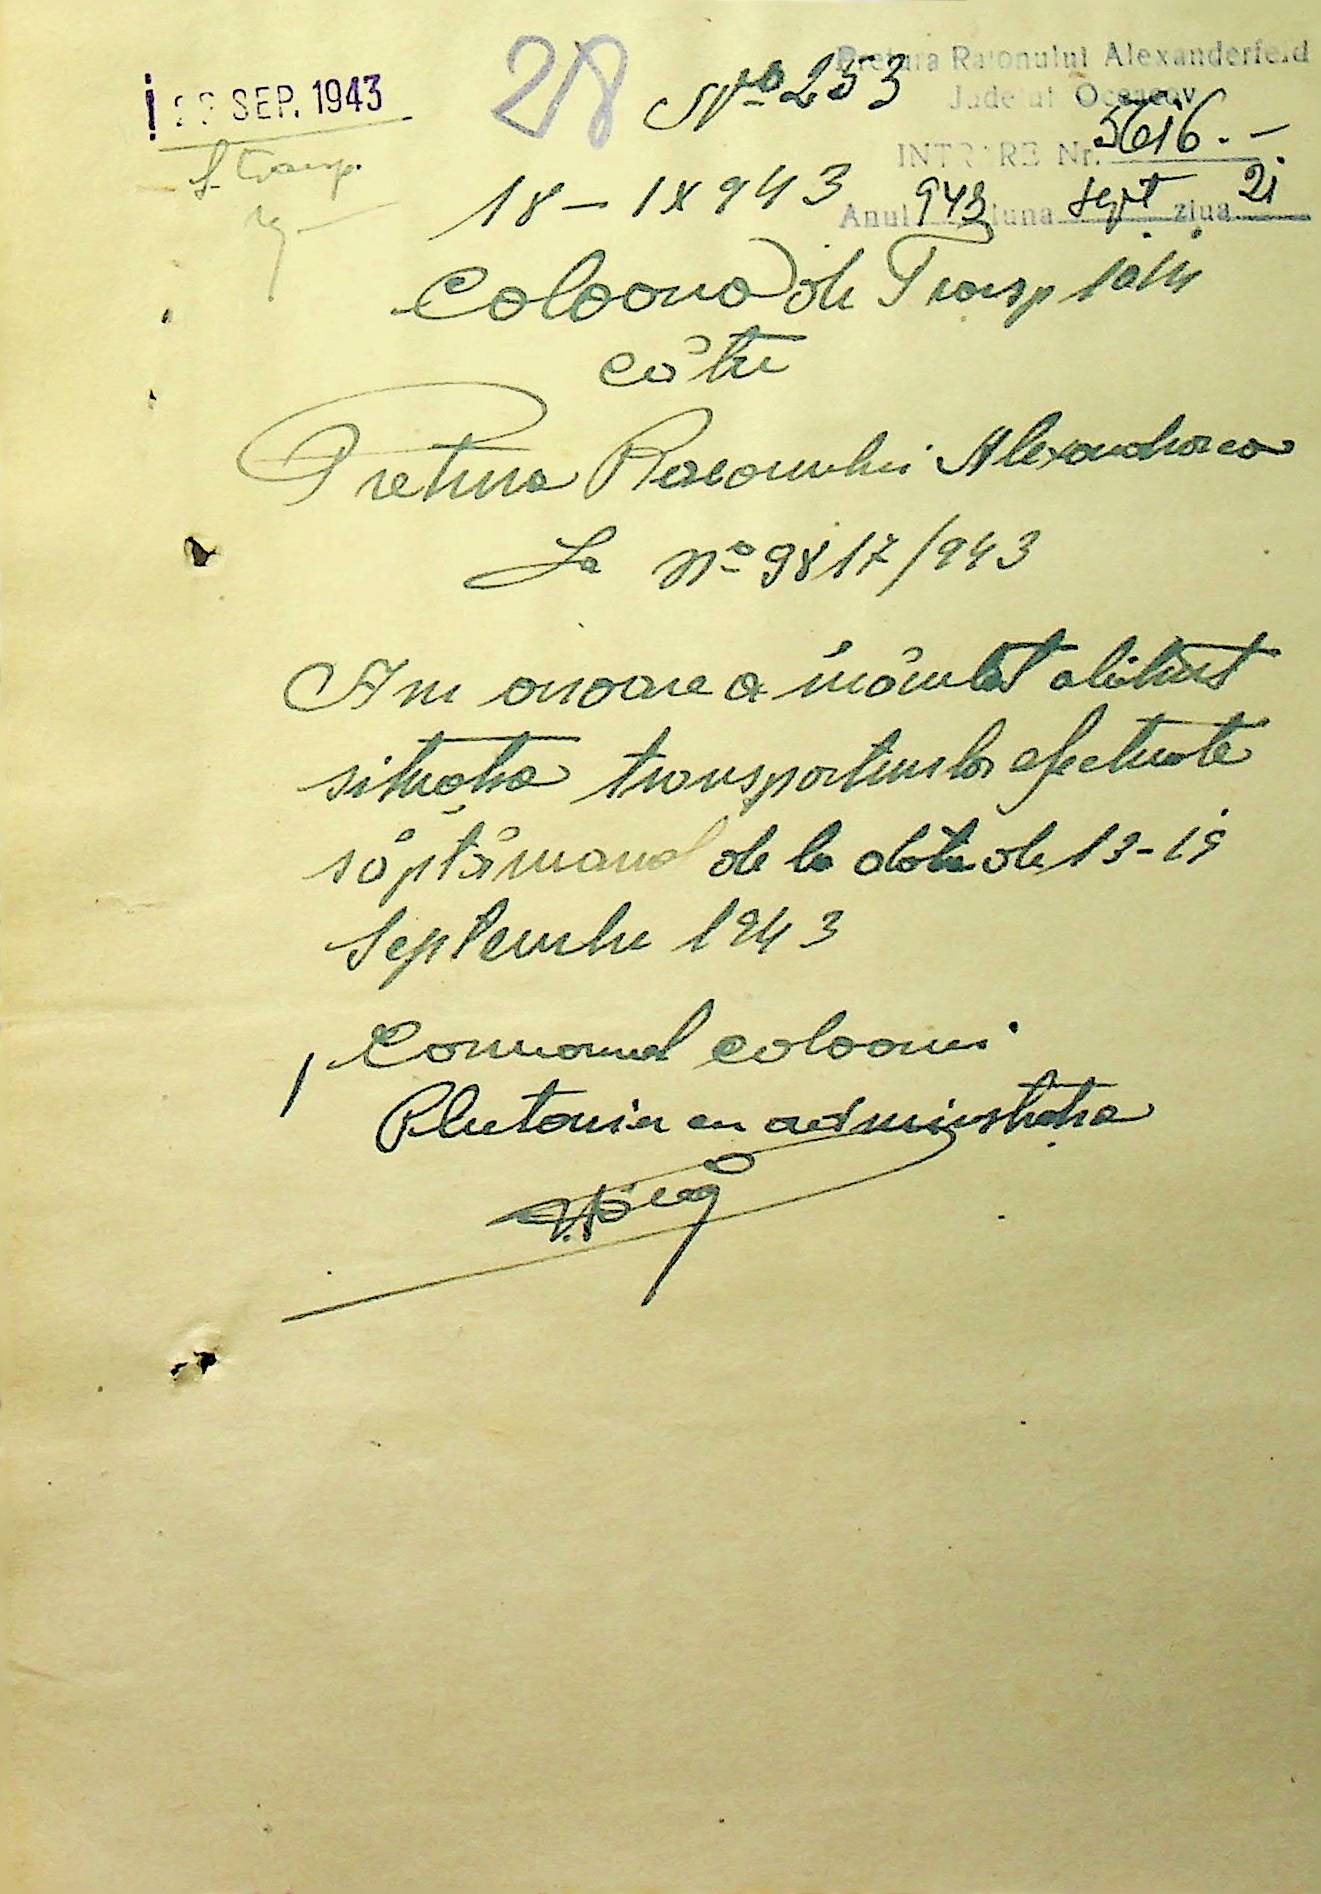 28
SEP. 1943
S. Transp.
Nº 253
Pretura Raionului Alexanderfeld
Județul Oceacov
INTRARE Nr. 5616.-
Anul 943 luna Sept ziua 21
18-IX 943
Coloana de Transp
către
Pretura Raionului Alexandrea
La Nº 9817/943
Am onoare a înainta alăturat
situația transporturilor efectuate
săptămana de la data de 13-19
Septembrie 1943
Comand coloanei
Plutonier cu administrația